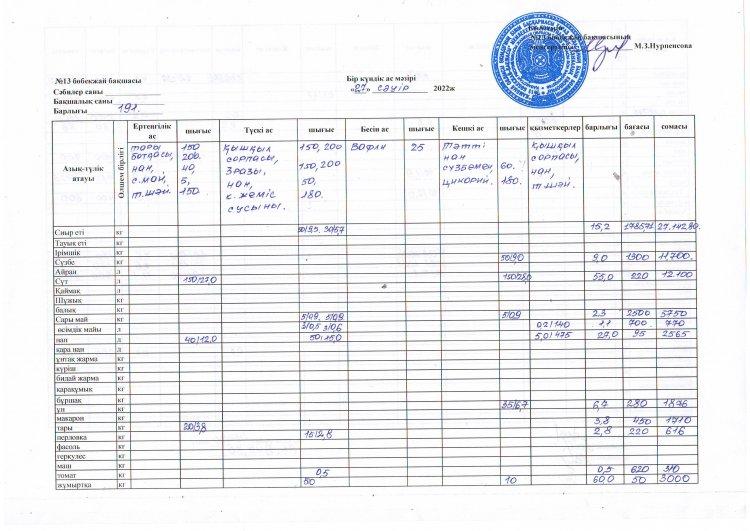 №13 бөбекжай бақшасының
М.З.Нурпенсова
№13 бөбекжай бақшасы
Сәбилер саны
Бақшалық саны
Барлығы 191.
Бір күндік ас мәзірі
«27» сәуір 2022ж
Азық-түлік атауы Өлшем бірлігі Ертеңгілік ас шығыс Түскі ас шығыс Бесін ас шығыс Кешкі ас шығыс қызметкерлер барлығы бағасы сомасы
тары 150 қышқыл 150, 200 вафли 25 тәтті қышқыл
ботқасы, 200. сорпасы, нан сорпасы,
нан, 40, зразы, 150, 200 сүзбемен, 60. нан,
с.май, 5, нан, 50, цикорий. 180. т.шәй.
т.шәй. 150. к.жеміс 180.
сусыны.
Сиыр еті кг 15,2 1785,71 27.142,80.
Тауық еті кг
Ірімшік кг
Сүзбе кг 50/90 9,0 1300 11.700.
Айран л
Сүт л 150/27,0 150/28,0 55,0 220 12.100
Қаймақ л
Шұжық кг
балық кг
Сары май кг 5/09 5/09 2,3 2500 5750
өсімдік майы л 3/0,5 3/0,6 02/140 1,1 700. 770
нан л 40/12,0 50/150 5,0/475 27,0 95 2565
қара нан л
ұнтақ жарма кг
күріш кг
бидай жарма кг
қарақұмық кг
бұршақ кг
ұн кг 35/6,7 6,7 280 1876
макарон кг
тары кг 20/3,8 3,8 450 1710
перловка кг 15/2,8 2,8 220 616
фасоль кг
геркулес кг
маш кг
томат кг 0,5 0,5 620 310
жұмыртқа кг 50 10 60,0 50 3000